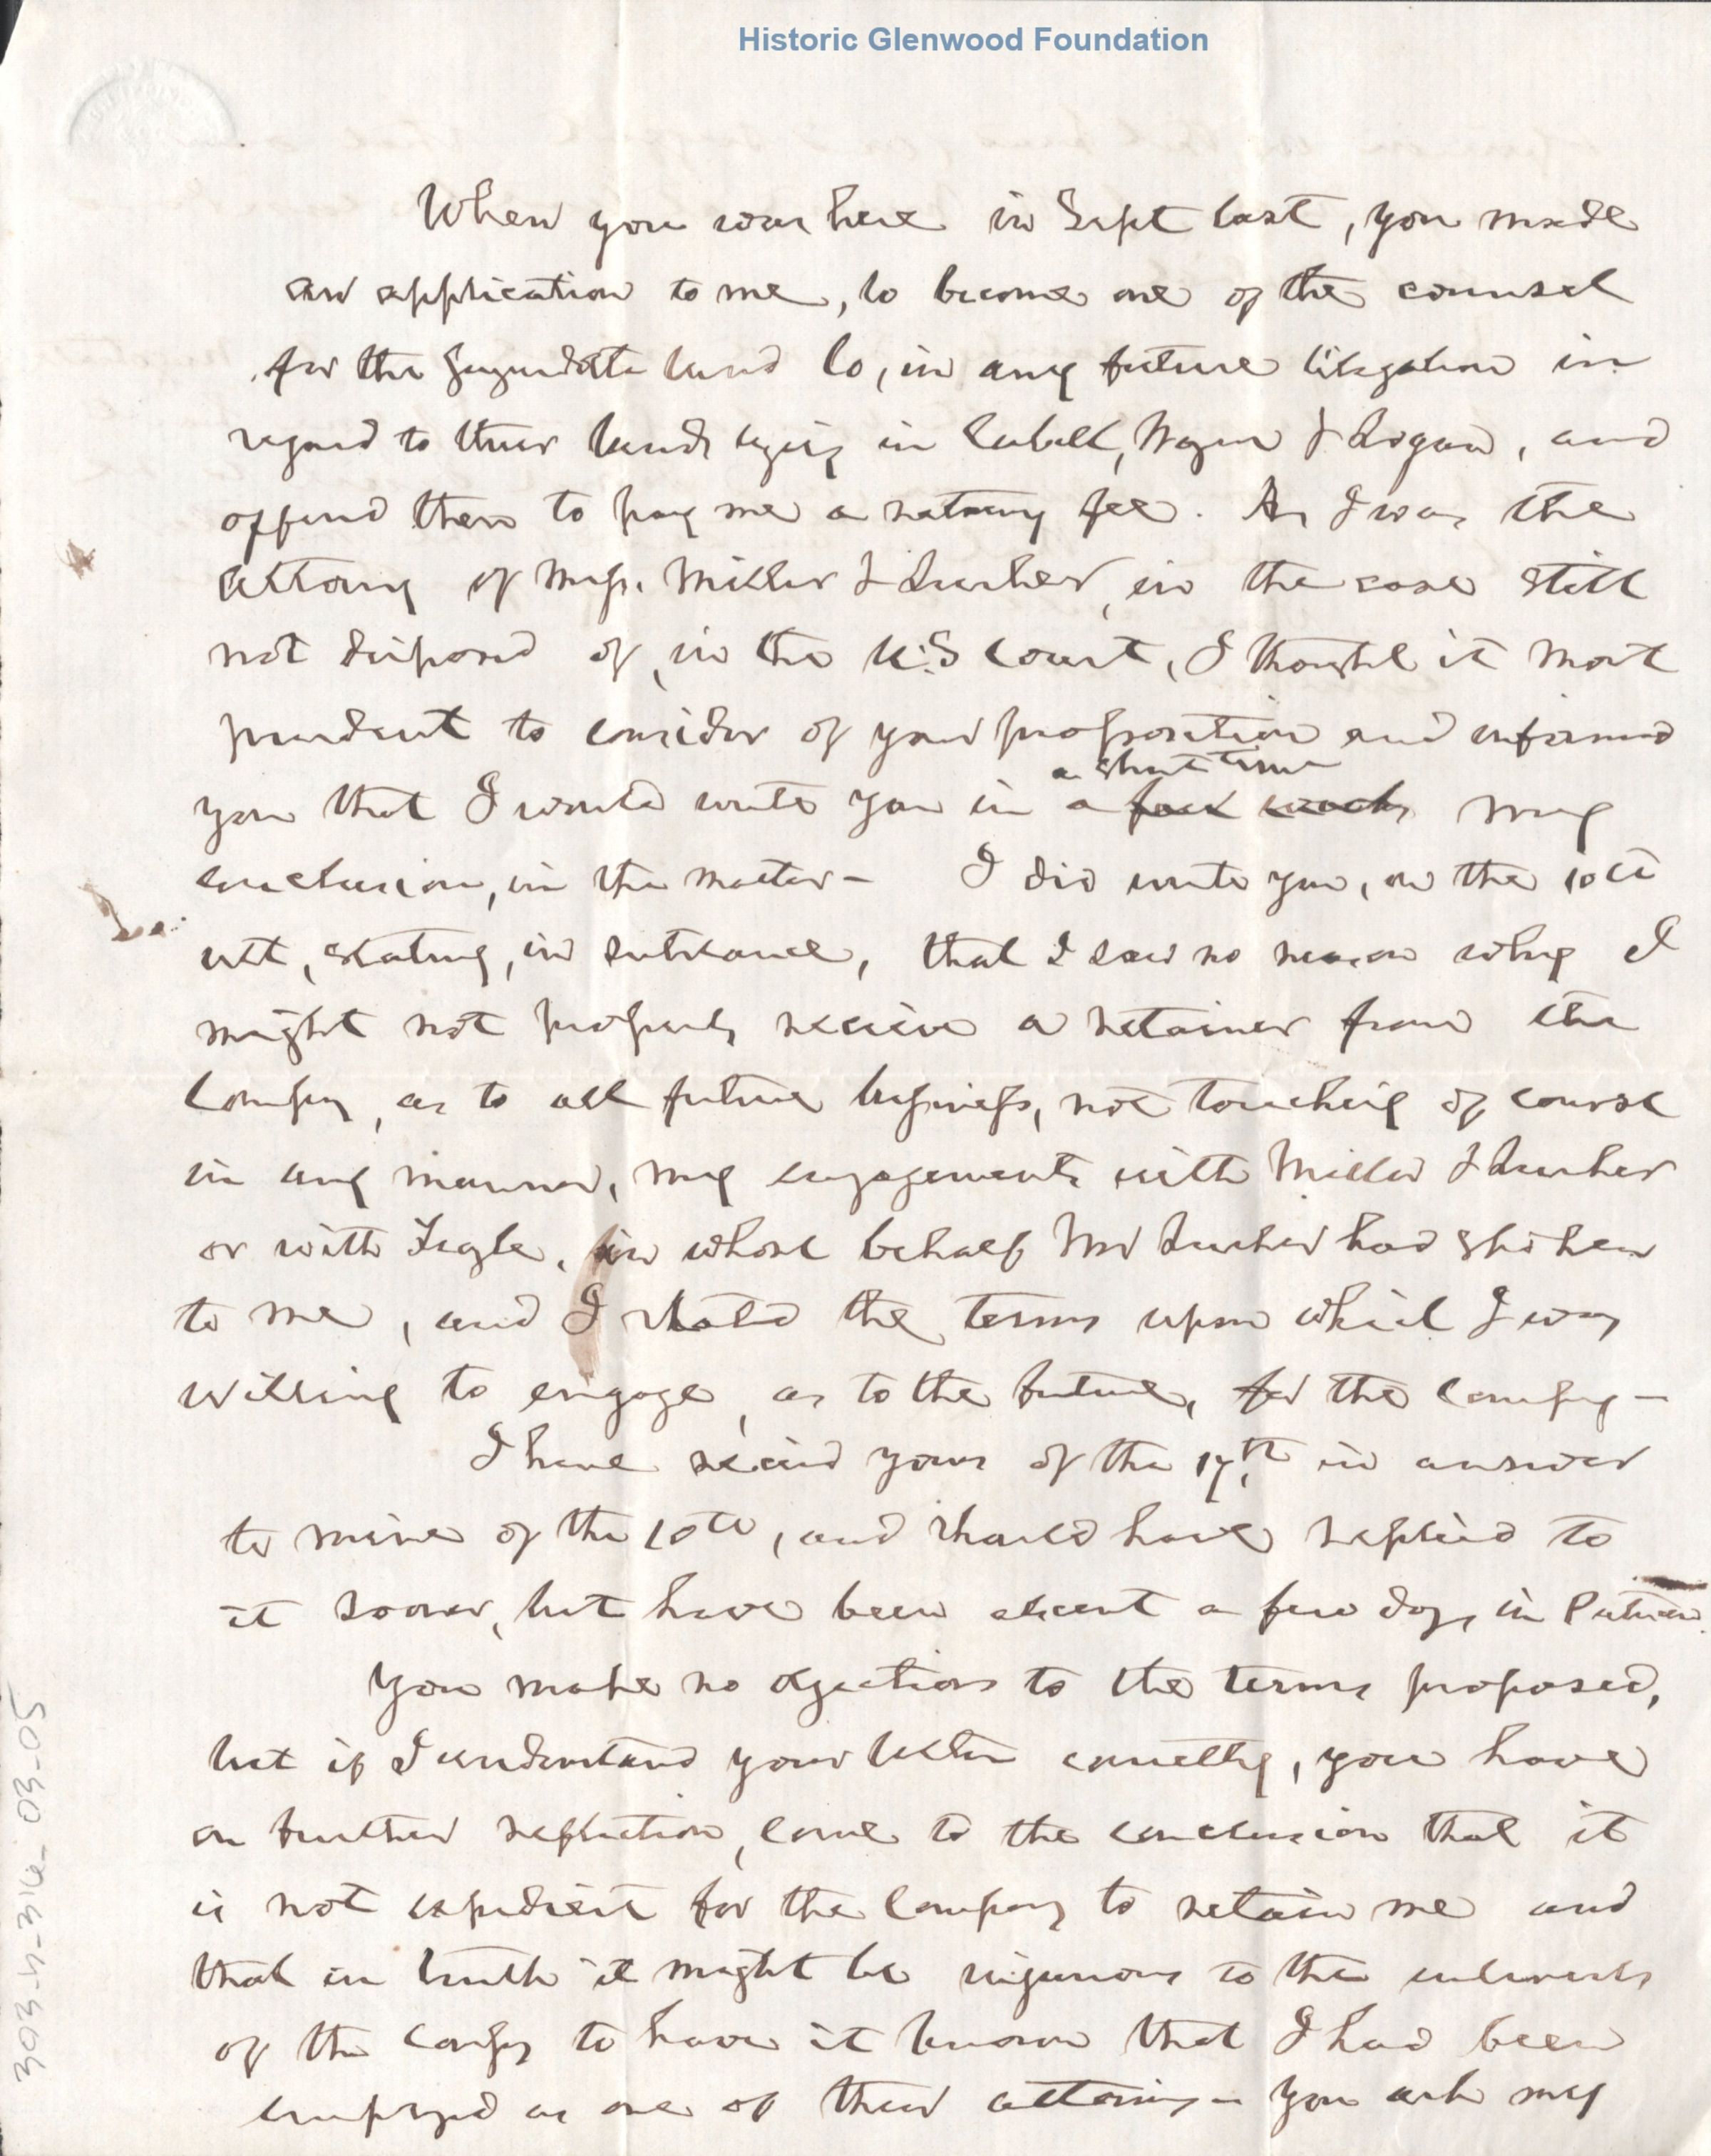 Historic Glenwood Foundation
When you was here in Sept last, you made
an application to me, to become one of the counsel
for the Guyandotte Land Co, in any future litigation in
regard to their lands lying in Cabell, Wayne & Logan, and
offered then to pay me a retaing fee. As I was the
attorny of Mess. Miller & Lurher, in the case still
not disposed of, in the U.S Court, I thought it most
prudent to consider of your proposition and informed
a short time
you that I would write you in a few weeks my
conclusion, in the matter - I did write you, on the 10th
ult, stating, in substance, that I saw no reason why I
might not properly receive a retainer from the
Compy, as to all future business, not touching of course
in any manner, my engagements with Miller & Lurher
or with , in whose behalf Mr Lurher had spoken
to me, and I stated the terms upon which I was
willing to engage, as to the future, for the Compy -
I have recied yours of the 17th in answer
to mine of the 10th, and should have replied to
it sooner, but have been absent a few days in Putnam.
You make no objections to the terms proposed,
but if I understand your letter correctly, you have
on further reflection, come to the conclusion that it
is not expedient for the Company to retain me and
that in truth it might be injurious to the interests
of the Compy to have it known that I had been
employed as one of their attornys - You ask my
303-h-316-03-05